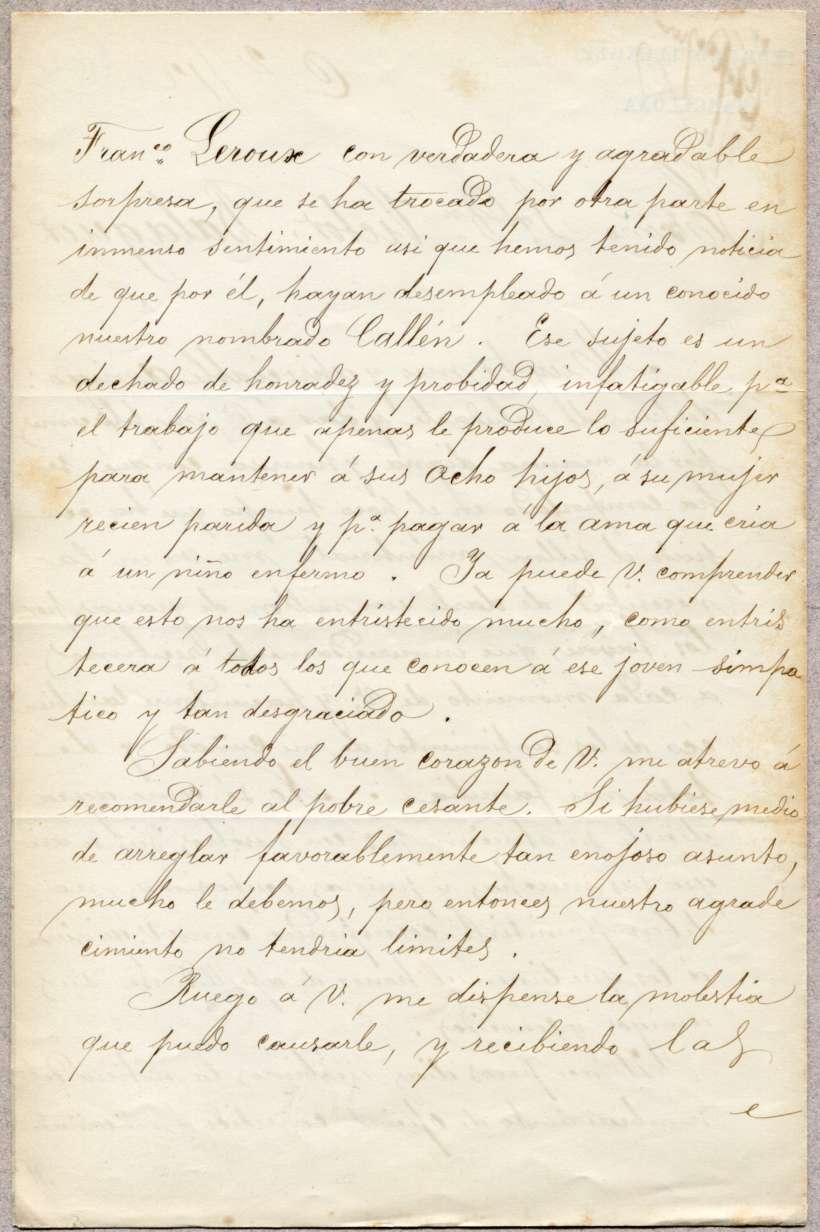 Fran.co Leroux con verdadera y agradable
sorpresa, que se ha trocado por otra parte en
inmenso sentimiento asi que hemos tenido noticia
de que por él, hayan desempleado á un conocido
nuestro nombrado Callén. Ese sujeto es un
dechado de honradez y probidad, infatigable pa
el trabajo que apenas le produce lo suficiente
para mantener á sus ocho hijos, á su mujer
recien parida y pa. pagar á la ama que cria
á un niño enfermo. Ya puede V. comprender
que esto nos ha entristecido mucho, como entris
tecera á todos los que conocen á ese joven simpa
tico y tan desgraciado.
Sabiendo el buen corazon de V. me atrevo á
recomendarle al pobre cesante. Si hubiese medio
de arreglar favorablemente tan enojoso asunto,
mucho le debemos, pero entonces nuestro agrade
cimiento no tendria limites.
Ruego á V. me dispense la molestia
que puedo causarle, y recibiendo las